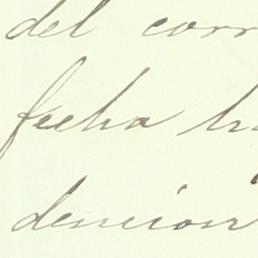 del corr
fecha h
dencion